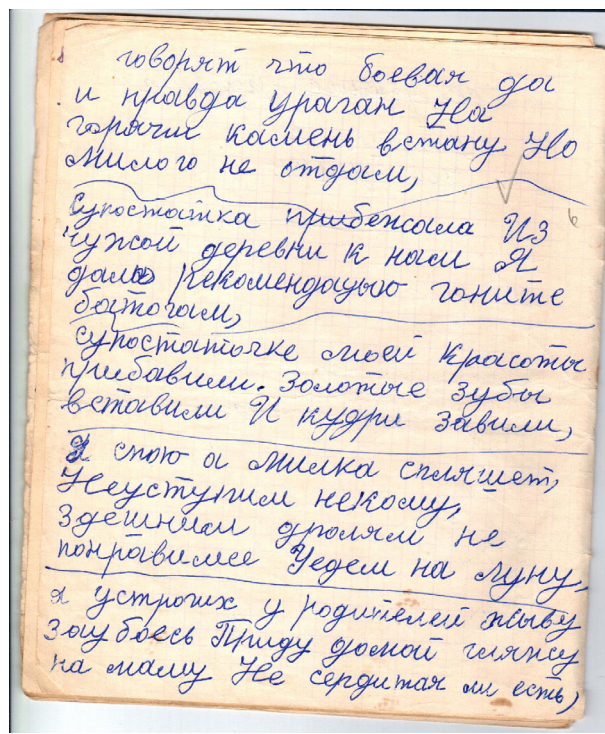 говорят что боевая да
и правда ураган На
горячи камень встану Но
милого не отдам,
Супостатка прибежала Из
чужой деревни к нам Я
дала рекомендацыю гоните
ботогам,
Супостаточке моей Красоты
прибавили. Золотые зубы
вставили И кудри завили,
Я спою а Милка спляшет,
Неуступим некому,
Здешним дролям не
понравимсе Уедем на луну,
я устрогих у родителей жыву
заубоесь Приду домой гляжу
на маму Не сердитая ли есть,